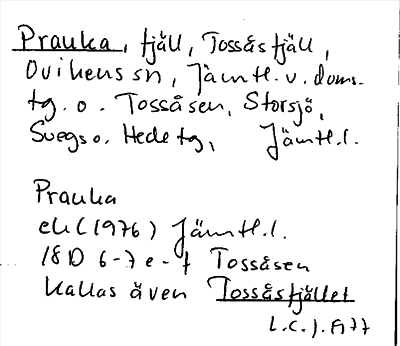 Prauka, fjäll, Tossåsfjäll,
Ovikens sn, Jämtl. v. doms.
tg. o. Tossåsen, Storsjö,
Svegs o. Hede tg, Jämtl.l.
Prauka
ek (1976) Jämtl.l.
18D 6-7 e-f Tossåsen
Kallas även Tossåsfjället
L.C.J.